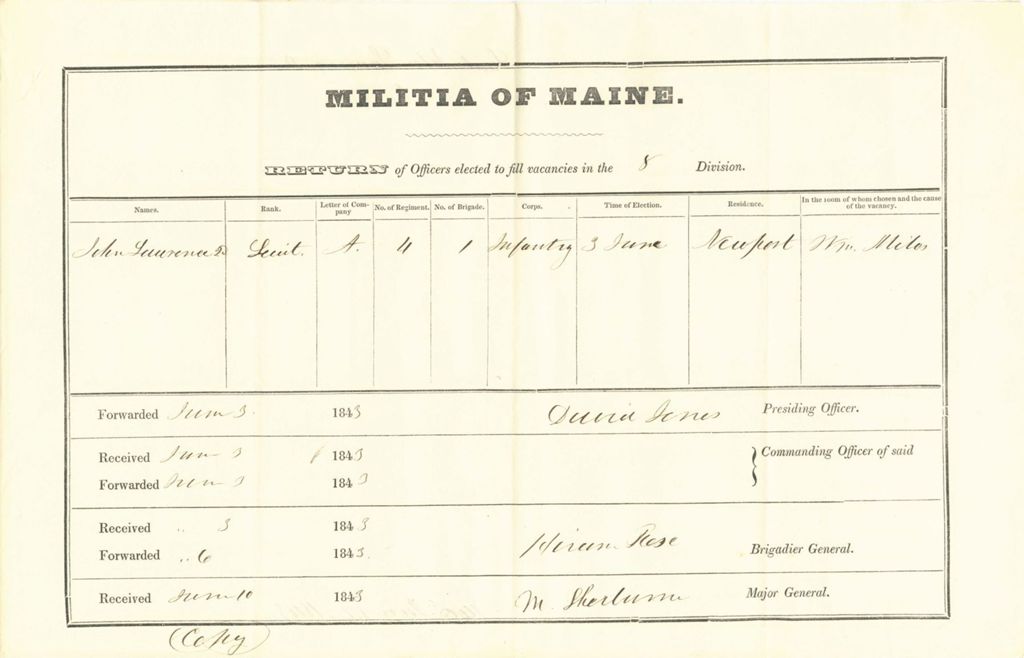 MILITIA OF MAINE.
RETURN of Officers elected to fill vacancies in the 8 Division.
Names. Rank. Letter of Company No. of Regiment. No. of Brigade. Corps. Time of Election. Residence. In the room of whom chosen and the cause of the vacancy.
John Lawrence 2d Leiut. A. 4 1 Infantry 3 June Newport Wm. Miles
Forwarded June 3. 1843 David Jones Presiding Officer.
Received June 3 1843 Commanding Officer of said
Forwarded June 3 1843
Received " 3 1843
Forwarded " 6 1843. Hiram Rose Brigadier General.
Received June 10 1843 M. Sherburne Major General.
(Copy)